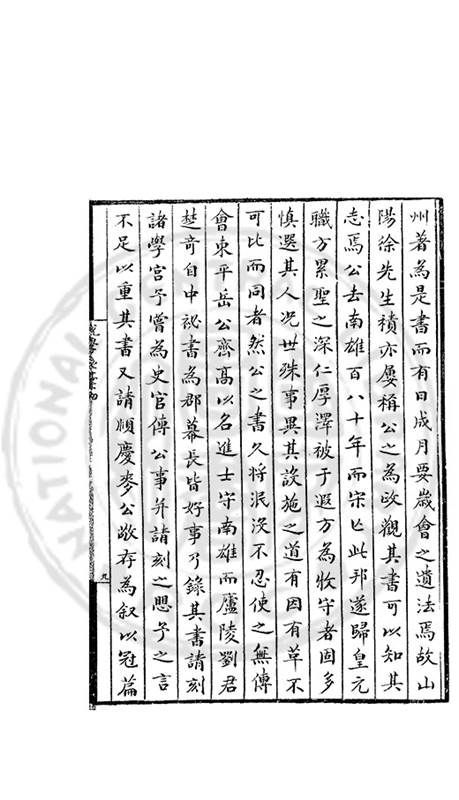 州著為是書而有日成月要歲會之遺法焉故山
陽徐先生積亦屢稱公之為政觀其書可以知其
志焉公去南雄百八十年而宋亡此邦遂歸皇元
職方累聖之深仁厚澤被于遐方為牧守者固多
慎選其人況世殊事異其設施之道有因有革不
可比而同者然公之書久將泯沒不忍使之無傳
會東平岳公齊高以名進士守南雄而廬陵劉君
楚奇自中祕書為郡幕長皆好事乃錄其書請刻
諸學宮予嘗為史官傳公事并請刻之愳予之言
不足以重其書又請順慶麥公敬存為叙以冠篇
九
NATIONAL